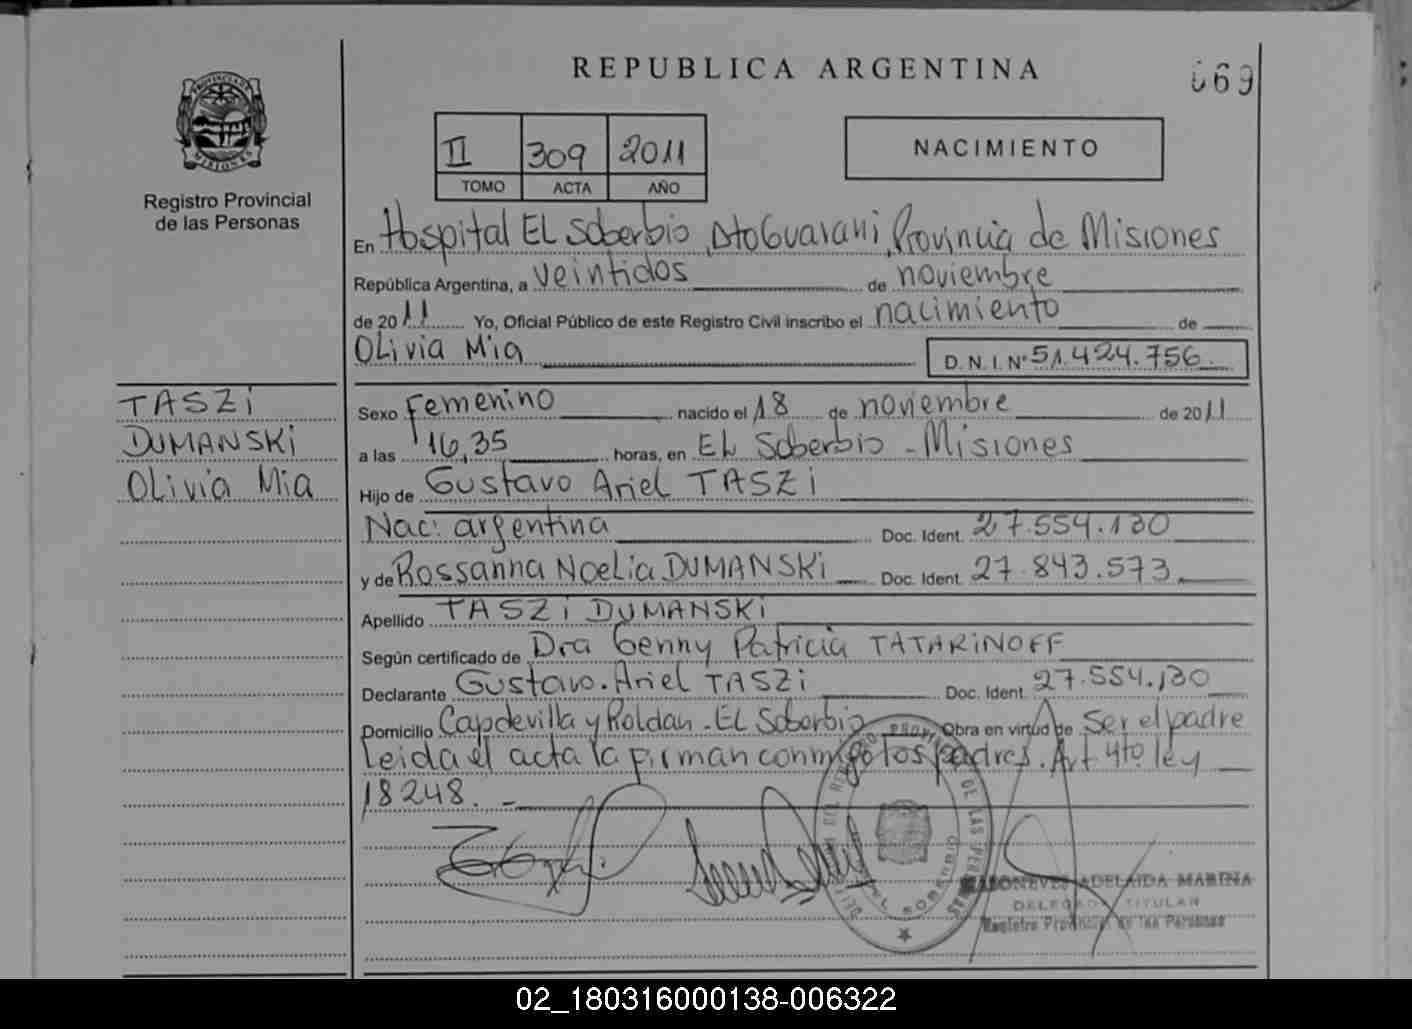 REPUBLICA ARGENTINA
069
PROVINCIA DE MISIONES
Registro Provincial
de las Personas
II 309 2011
TOMO ACTA AÑO
NACIMIENTO
En Hospital EL Soberbio, Dto Guarani, Provincia de Misiones
República Argentina, a veintidos de noviembre
de 2011 Yo, Oficial Público de este Registro Civil inscribo el nacimiento de
OLivia Mia D.N.I. Nº 51.424.756.
TASZi
DUMANSKi
OLivia Mia
Sexo Femenino nacido el 18 de noviembre de 2011
a las 16,35 horas, en EL Soberbio - Misiones
Hijo de Gustavo Ariel TASZi
Nac: argentina Doc. Ident. 27.554.130
y de Rossanna Noelia DUMANSKi Doc. Ident. 27.843.573.
Apellido TASZi DUMANSKi
Según certificado de Dra Genny Patricia TATARiNOFF
Declarante Gustavo Ariel TASZi Doc. Ident. 27.554.130
Domicilio Capdevilla y Roldan - EL Soberbio Obra en virtud de Ser el padre
Leida el acta la firman conmigo los padres. Art 4to. ley
18248. -
ADELAIDA MARINA
DELEGADA TITULAR
Registro Provincial de las Personas
EL SOBERBIO
02_180316000138-006322